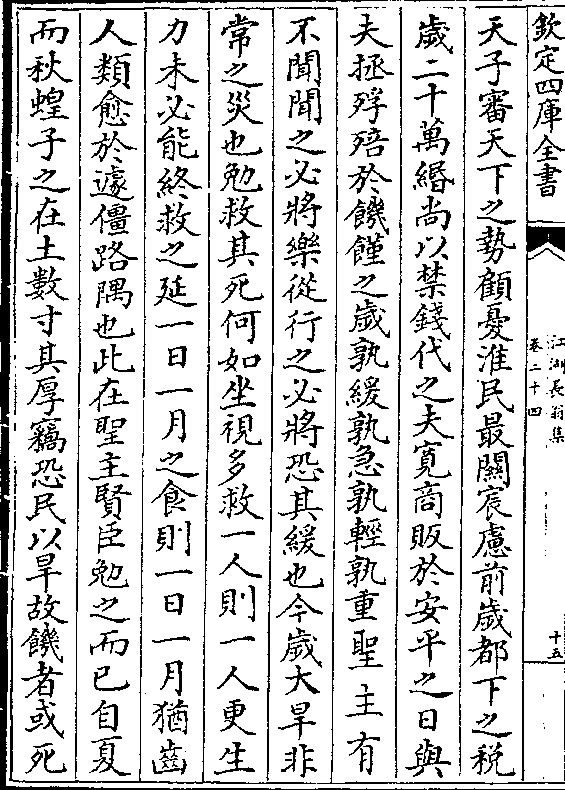 欽定四庫全書
江湖長翁集
卷二十四
十五
天子審天下之勢顧憂淮民最關宸慮前歲都下之税
歲二十萬緡尚以禁錢代之夫寛商販於安平之日與
夫拯殍殕於饑饉之歲孰緩孰急孰輕孰重聖主有
不聞聞之必將樂從行之必將恐其緩也今歲大旱非
常之災也勉救其死何如坐視多救一人則一人更生
力未必能終救之延一日一月之食則一日一月猶齒
人類愈於遽僵路隅也此在聖主賢臣勉之而已自夏
而秋蝗子之在土數寸其厚竊恐民以旱故饑者或死